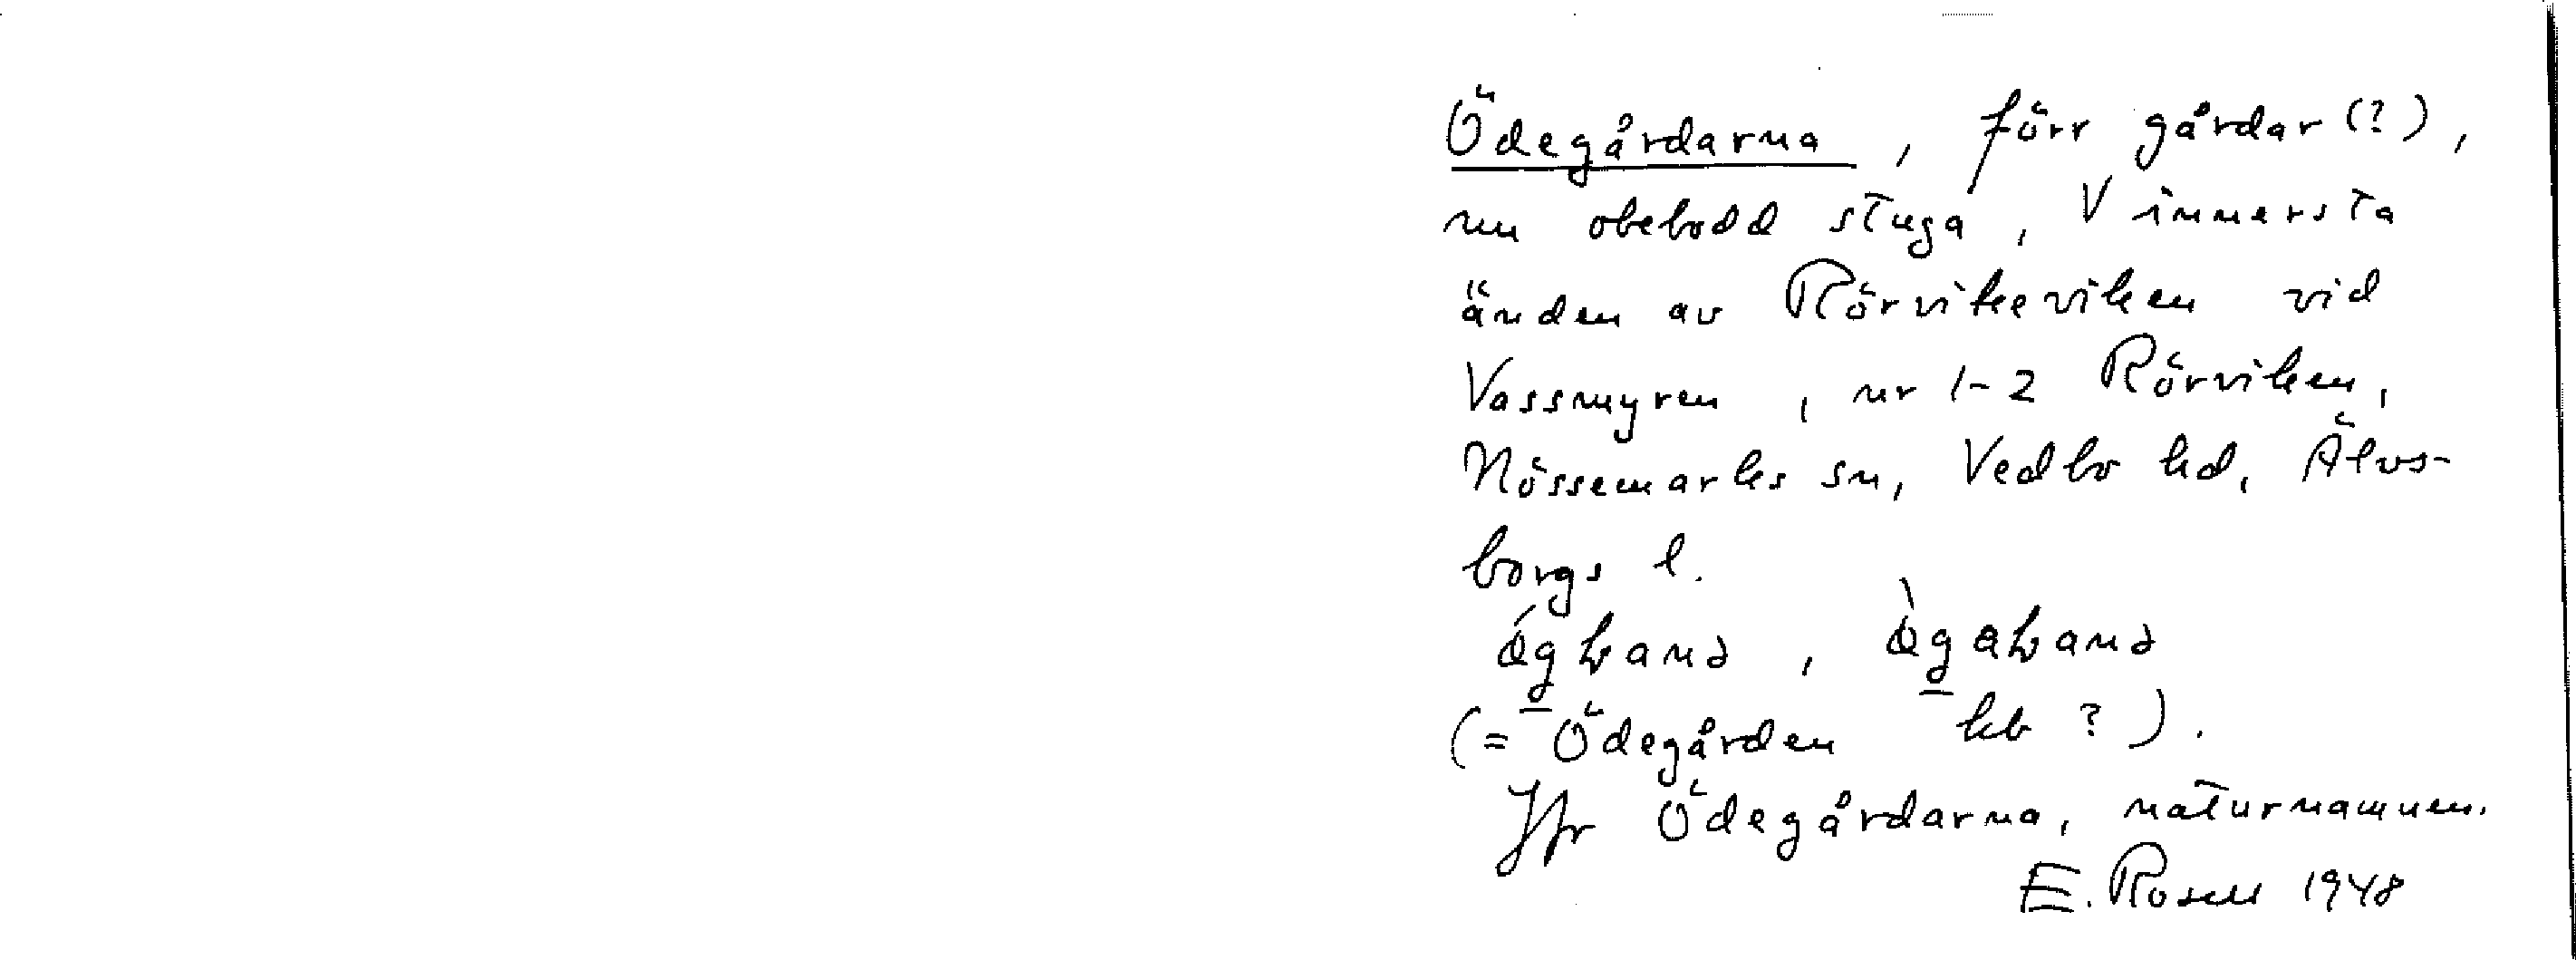 Ödegårdarna, förr gårdar (?),
nu obebodd stuga, V innersta
änden av Rörvikeviken vid
Vassmyren, nr 1-2 Rörviken,
Nössemarks sn, Vedbo hd, Älvs-
borgs l.
(= Ödegården kb ?).
Jfr Ödegårdarna, naturnamnen.
E. Rosell 1948